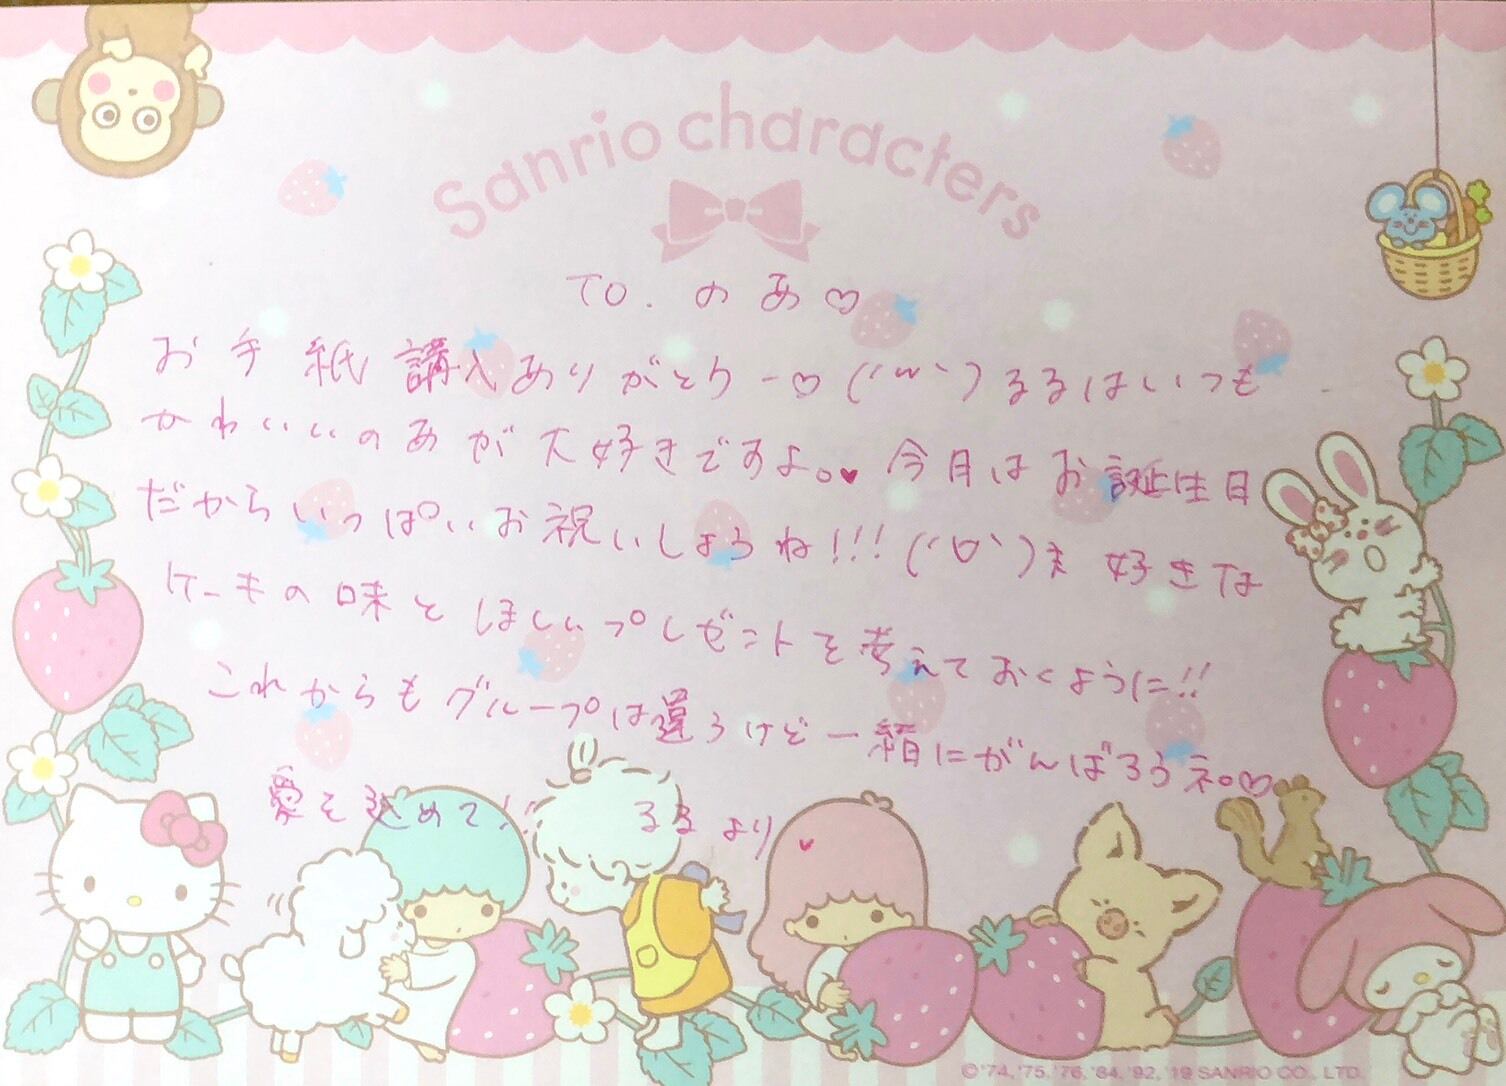 Sanrio characters
TO. のあ♡
お手紙講入ありがとうー♡(´꒳`)るるはいつも
かわいいのあが大好きですよ。♥今月はお誕生日
だからいっぱいお祝いしようね!!!(´▽`)好きな
ケーキの味とほしいプレゼントを考えておくように!!
これからもグループは違うけど一緒にがんばろうネ。♡
愛を込めて!! るるより♥
©'74,'75,'76,'84,'92,'19 SANRIO CO., LTD.